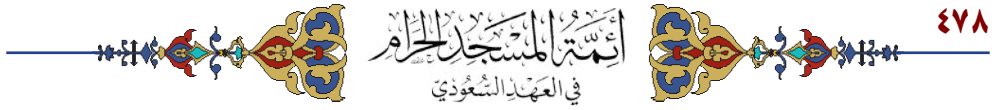 ٤٧٨
أئمة المسجد الحرام
في العهد السعودي